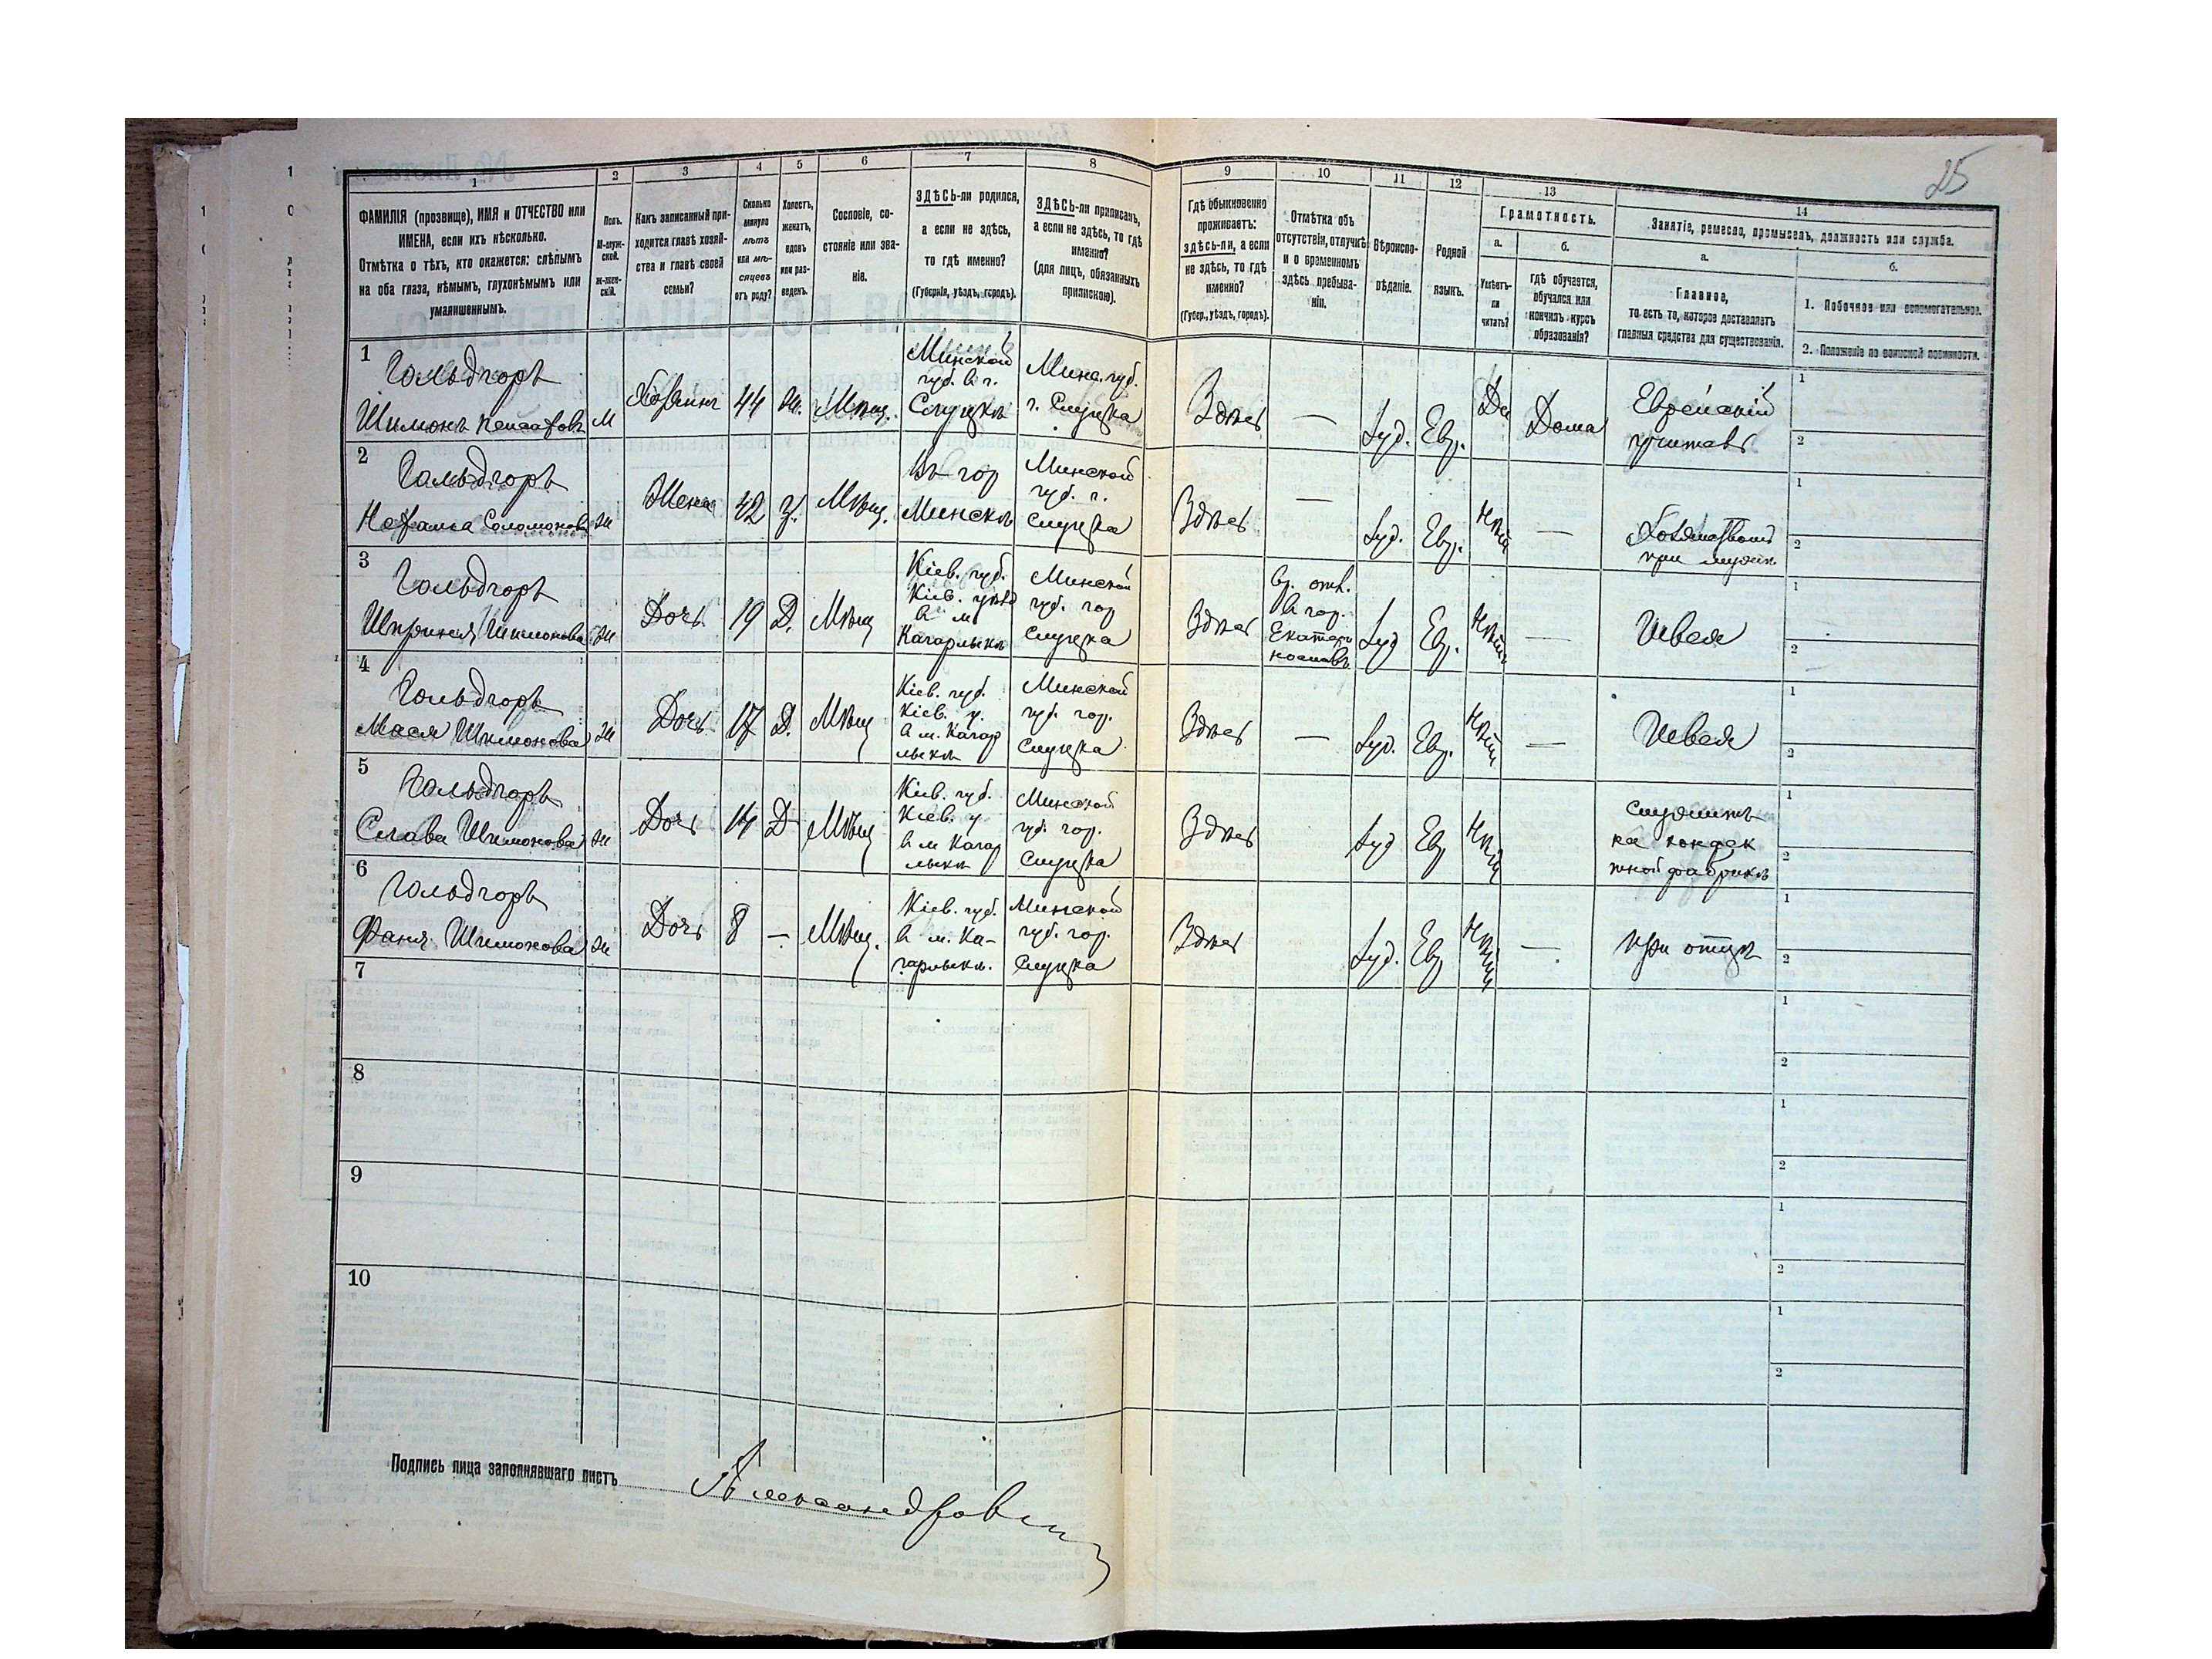 25
1
2
3
4
5
6
7
8
9
10
11
12
13
14
ФАМИЛІЯ (прозвище), ИМЯ и ОТЧЕСТВО или
ИМЕНА, если ихъ нѣсколько.
Отмѣтка о тѣхъ, кто окажется: слѣпымъ
на оба глаза, нѣмымъ, глухонѣмымъ или
умалишеннымъ.
Полъ.
М-муж-
ской.
ж-жен-
скій.
Какъ записанный при-
ходится главѣ хозяй-
ства и главѣ своей
семьи?
Сколько
минуло
лѣтъ
или мѣ-
сяцевъ
отъ роду?
Холостъ,
женатъ,
вдовъ
или раз-
веденъ.
Сословіе, со-
стояніе или зва-
ніе.
ЗДѢСЬ-ли родился,
а если не здѣсь,
то гдѣ именно?
(Губернія, уѣздъ, городъ).
ЗДѢСЬ-ли приписанъ,
а если не здѣсь, то гдѣ
именно?
(для лицъ, обязанныхъ
припискою).
Гдѣ обыкновенно
проживаетъ:
здѣсь-ли, а если
не здѣсь, то гдѣ
именно?
(Губер., уѣздъ, городъ).
Отмѣтка объ
отсутствіи, отлучкѣ
и о временномъ
здѣсь пребыва-
ніи.
Вѣроиспо-
вѣданіе.
Родной
языкъ.
Грамотность.
а.
б.
Умѣетъ-
ли
читать?
гдѣ обучается,
обучался или
кончилъ курсъ
образованія?
Занятіе, ремесло, промыселъ, должность или служба.
а.
б.
Главное,
то есть то, которое доставляетъ
главныя средства для существованія.
1. Побочное или вспомогательное.
2. Положеніе по воинской повинности.
1
Гольдгоръ
Шимонъ
М
Хозяинъ
44
Ж.
Мѣщ.
Минской
губ. в г.
Слуцкѣ
Минс. губ.
г. Слуцка
Здѣсь
—
Іуд.
Евр.
Да
Дома
Еврейскій
учитель
1
2
2
Гольдгоръ
Соломонова
Ж
Жена
42
З.
Мѣщ.
Въ гор
Минскѣ
Минской
губ. г.
Слуцка
Здѣсь
—
Іуд.
Евр.
Нѣтъ
—
Хозяйство
при мужѣ
1
2
3
Гольдгоръ
Шпринся Шимонова
Ж
Дочь
19
Д.
Мѣщ
Кіев. губ.
Кіев. уѣзд
в м
Кагарлыкѣ
Минской
губ. гор
Слуцка
Здѣсь
вр. отл.
в гор.
Екатери
нославѣ
Іуд
Евр.
Нѣтъ
—
Швея
1
2
4
Гольдгоръ
Мася Шимонова
Ж
Дочь
17
Д.
Мѣщ
Кіев. губ.
Кіев. у.
в м. Кагар
лыкѣ
Минской
губ. гор.
Слуцка
Здѣсь
—
Іуд.
Евр.
Нѣтъ
—
Швея
1
2
5
Гольдгоръ
Слава Шимонова
Ж
Дочь
14
Д
Мѣщ
Кіев. губ.
Кіев. у
в м Кагар
лыкѣ
Минской
губ. гор.
Слуцка
Здѣсь
Іуд
Евр
Нѣтъ
Служитъ
на конфек
тной фабрикѣ
1
2
6
Гольдгоръ
Фаня Шимонова
Ж
Дочь
8
—
Мѣщ.
Кіев. губ.
в м. Ка-
гарлыкѣ.
Минской
губ. гор.
Слуцка
Здѣсь
Іуд.
Евр
Нѣтъ
—
при отцѣ
1
2
7
1
2
8
1
2
9
1
2
10
1
2
Подпись лица заполнявшаго листъ